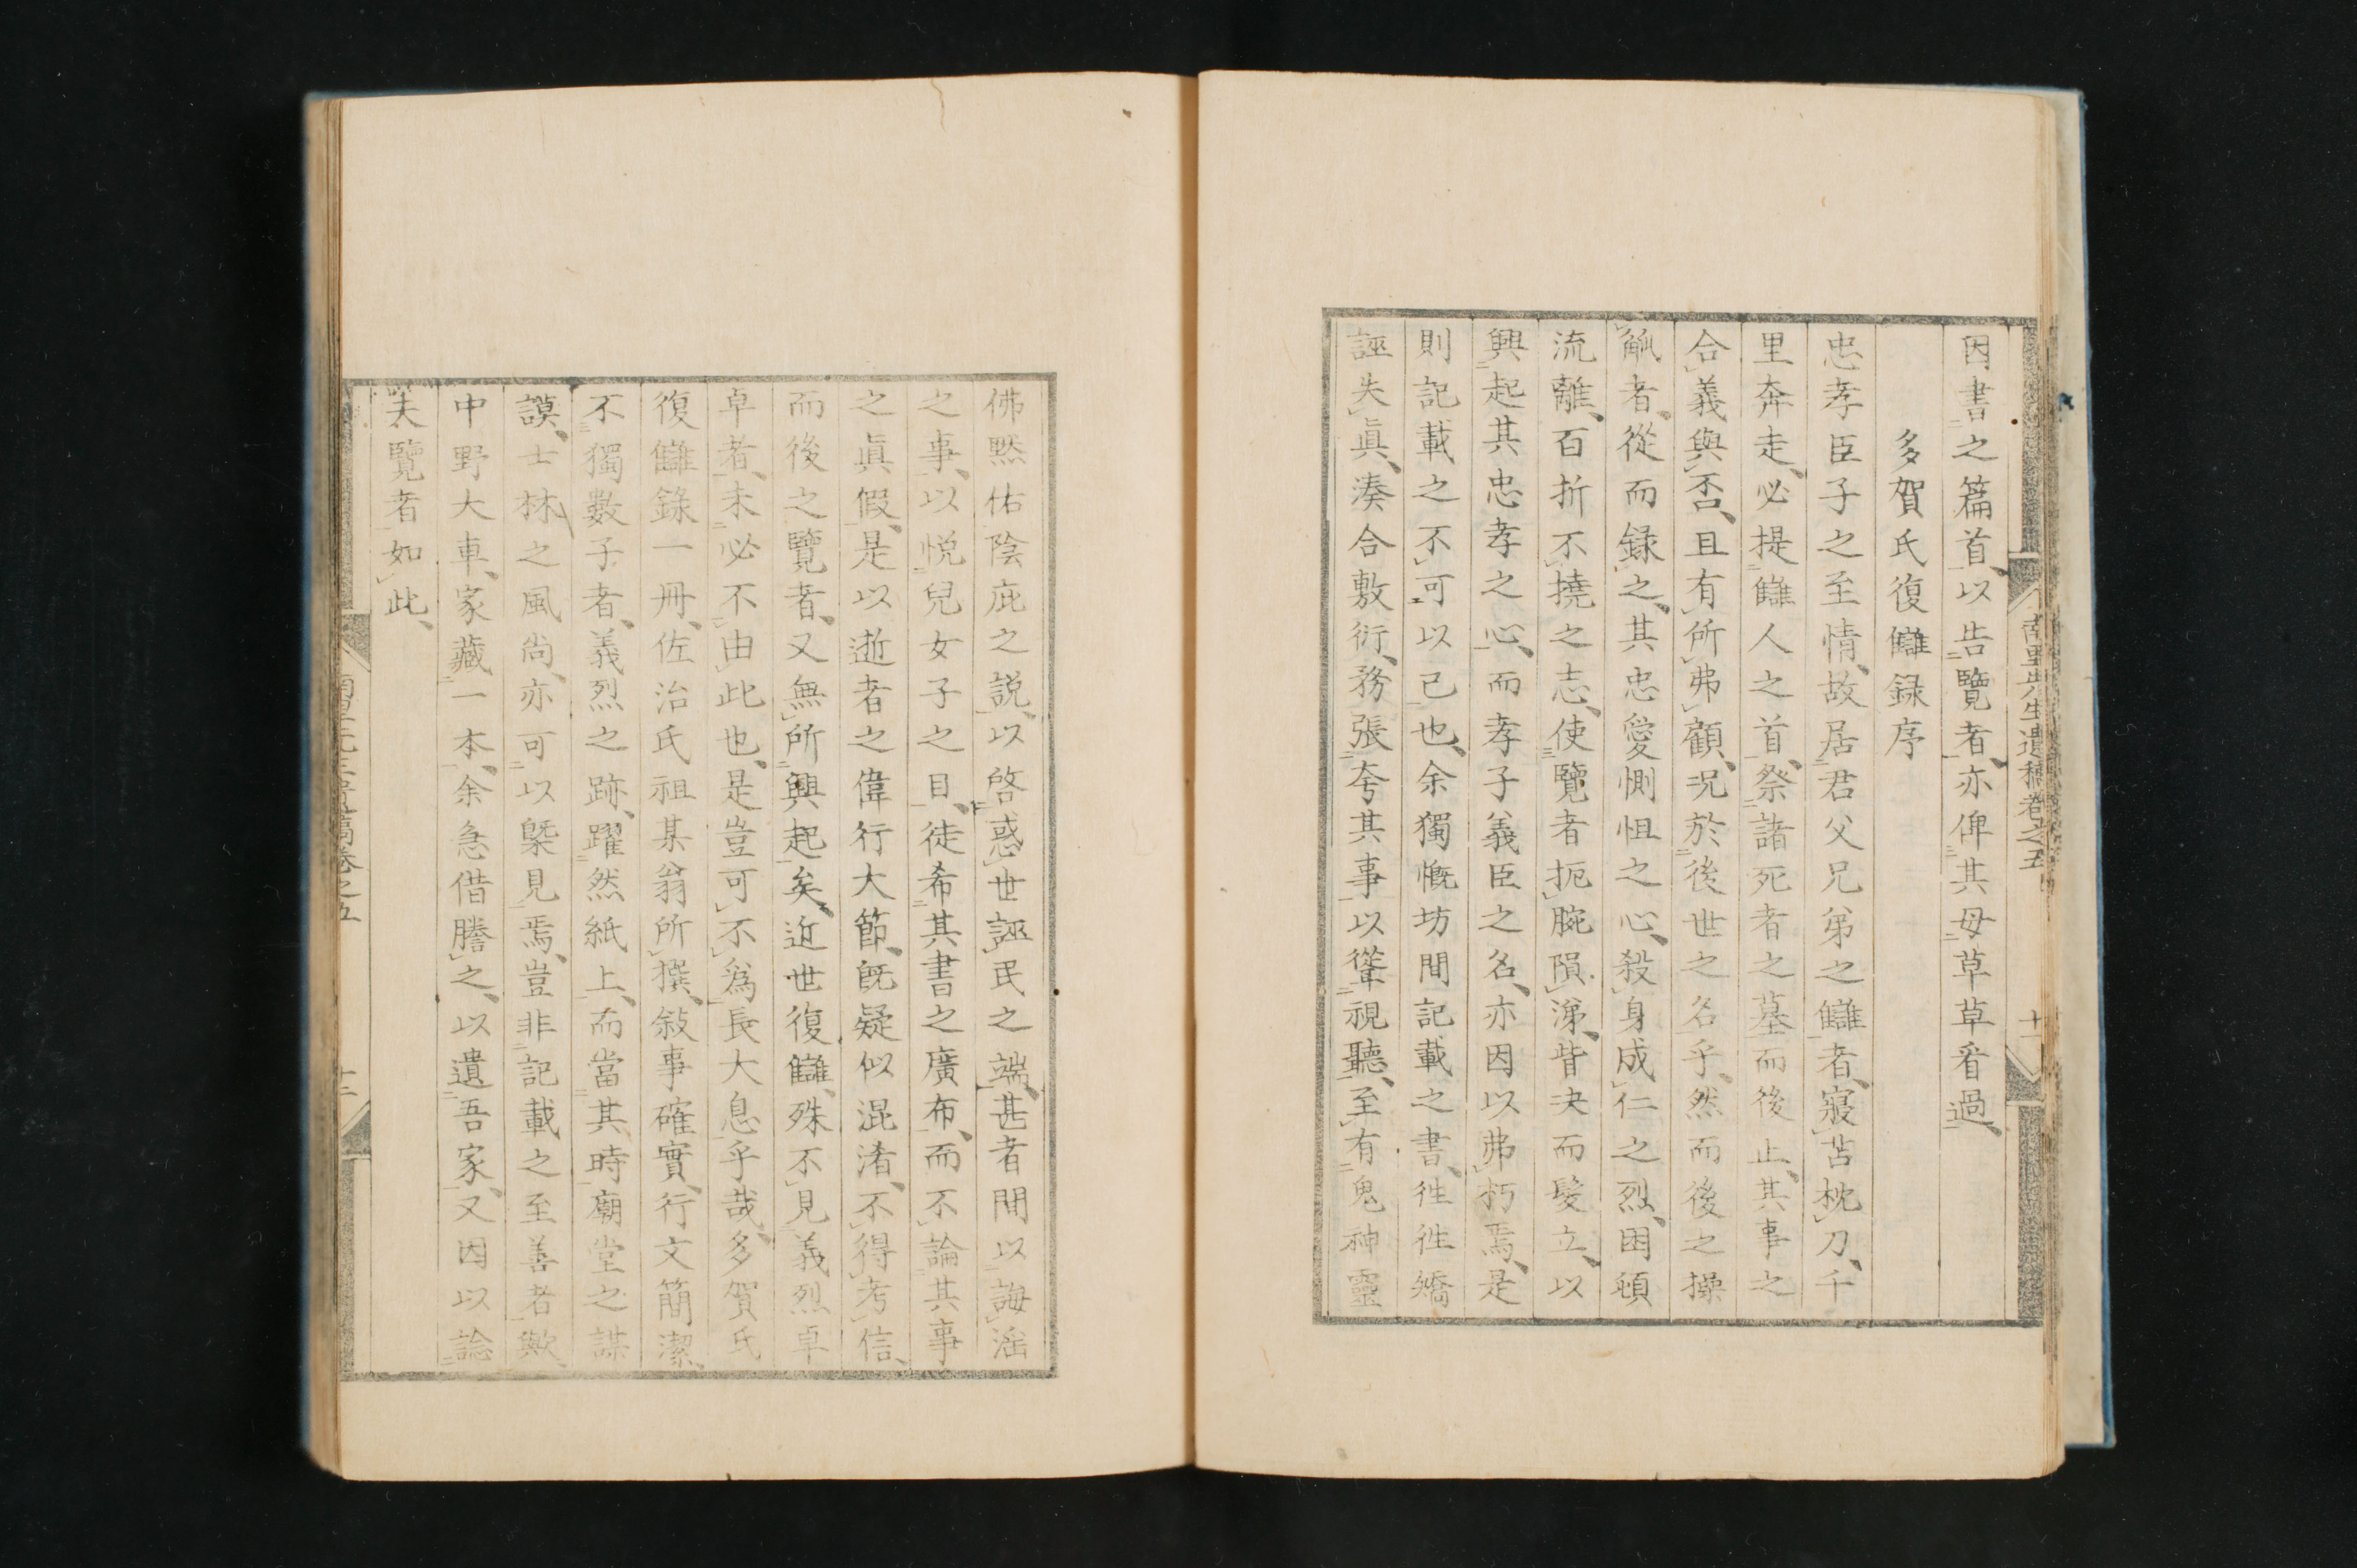 因書之篇首、以告覽者、亦俾其毋草草看過、
多賀氏復讎録序
忠孝臣子之至情、故居君父兄弟之讎者、寢苫枕刀、千
里奔走、必提讎人之首、祭諸死者之墓而後止、其事之
合義與否、且有所弗顧、况於後世之名乎、然而後之操
觚者、從而録之、其忠愛惻怛之心、殺身成仁之烈、困頓
流離、百折不撓之志、使覽者扼腕隕涕、眥决而髮立、以
興起其忠孝之心、而孝子義臣之名、亦因以弗朽焉、是
則記載之不可以已也、余獨慨坊間記載之書、徃徃矯
誣失眞、湊合敷衍、務張夸其事以聳視聽、至有鬼神靈
佛黙佑陰庇之説、以啓惑世誣民之端、甚者間以誨淫
之事、以悦兒女子之目、徒希其書之廣布、而不論其事
之眞假、是以逝者之偉行大節、旣疑似混淆、不得考信、
而後之覽者、又無所興起矣、近世復讎、殊不見義烈卓
卓者、未必不由此也、是豈可不爲長大息乎哉、多賀氏
復讎錄一冊、佐治氏祖某翁所撰、敍事確實、行文簡潔、
不獨數子者、義烈之跡、躍然紙上、而當其時廟堂之謀
謨、士林之風尚、亦可以槩見焉、豈非記載之至善者歟、
中野大車、家藏一本、余急借謄之、以遺吾家、又因以諗
夫覽者如此、
先生遺稿卷之五
十一
稿卷之五
十二